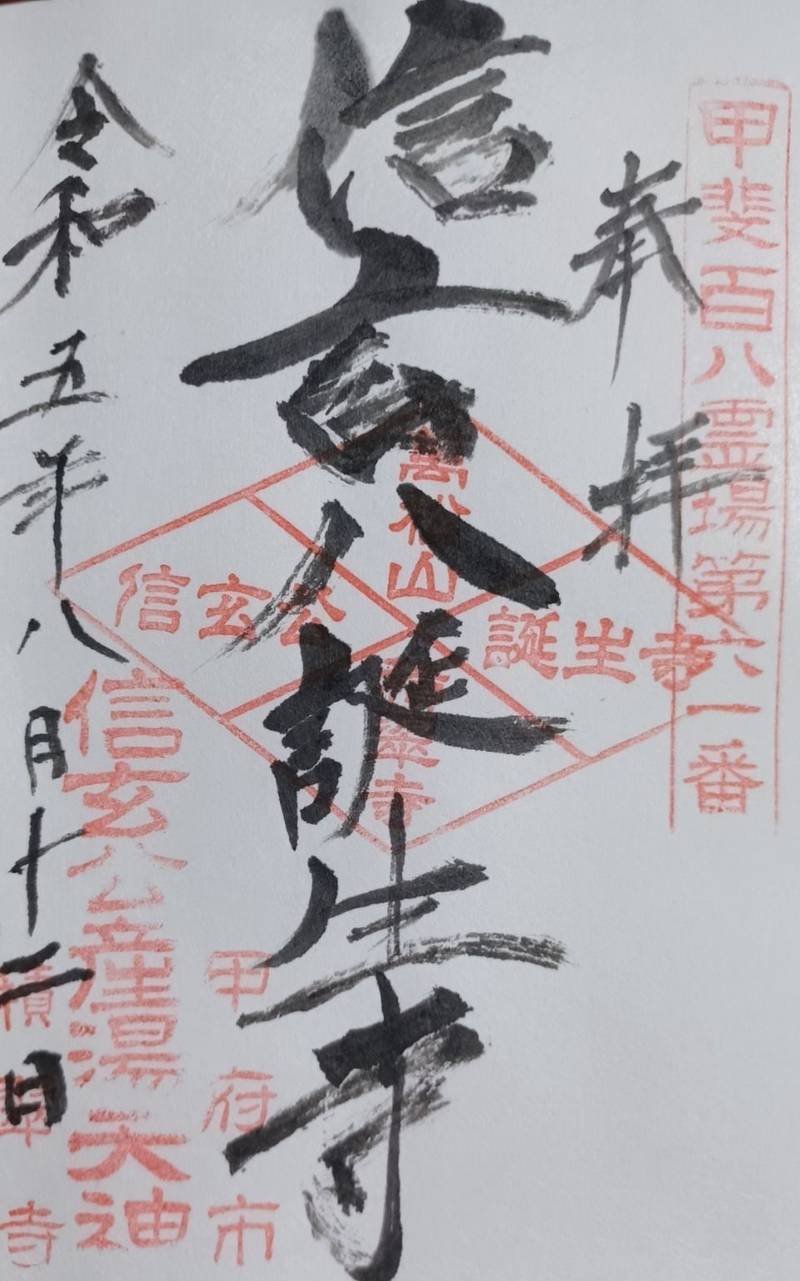 甲斐百八霊場第六一番
奉拝
信玄公誕生寺
萬松山
信玄公
誕生寺
積翠寺
甲府市
信玄公産湯天神
積翠寺
令和五年八月十二日